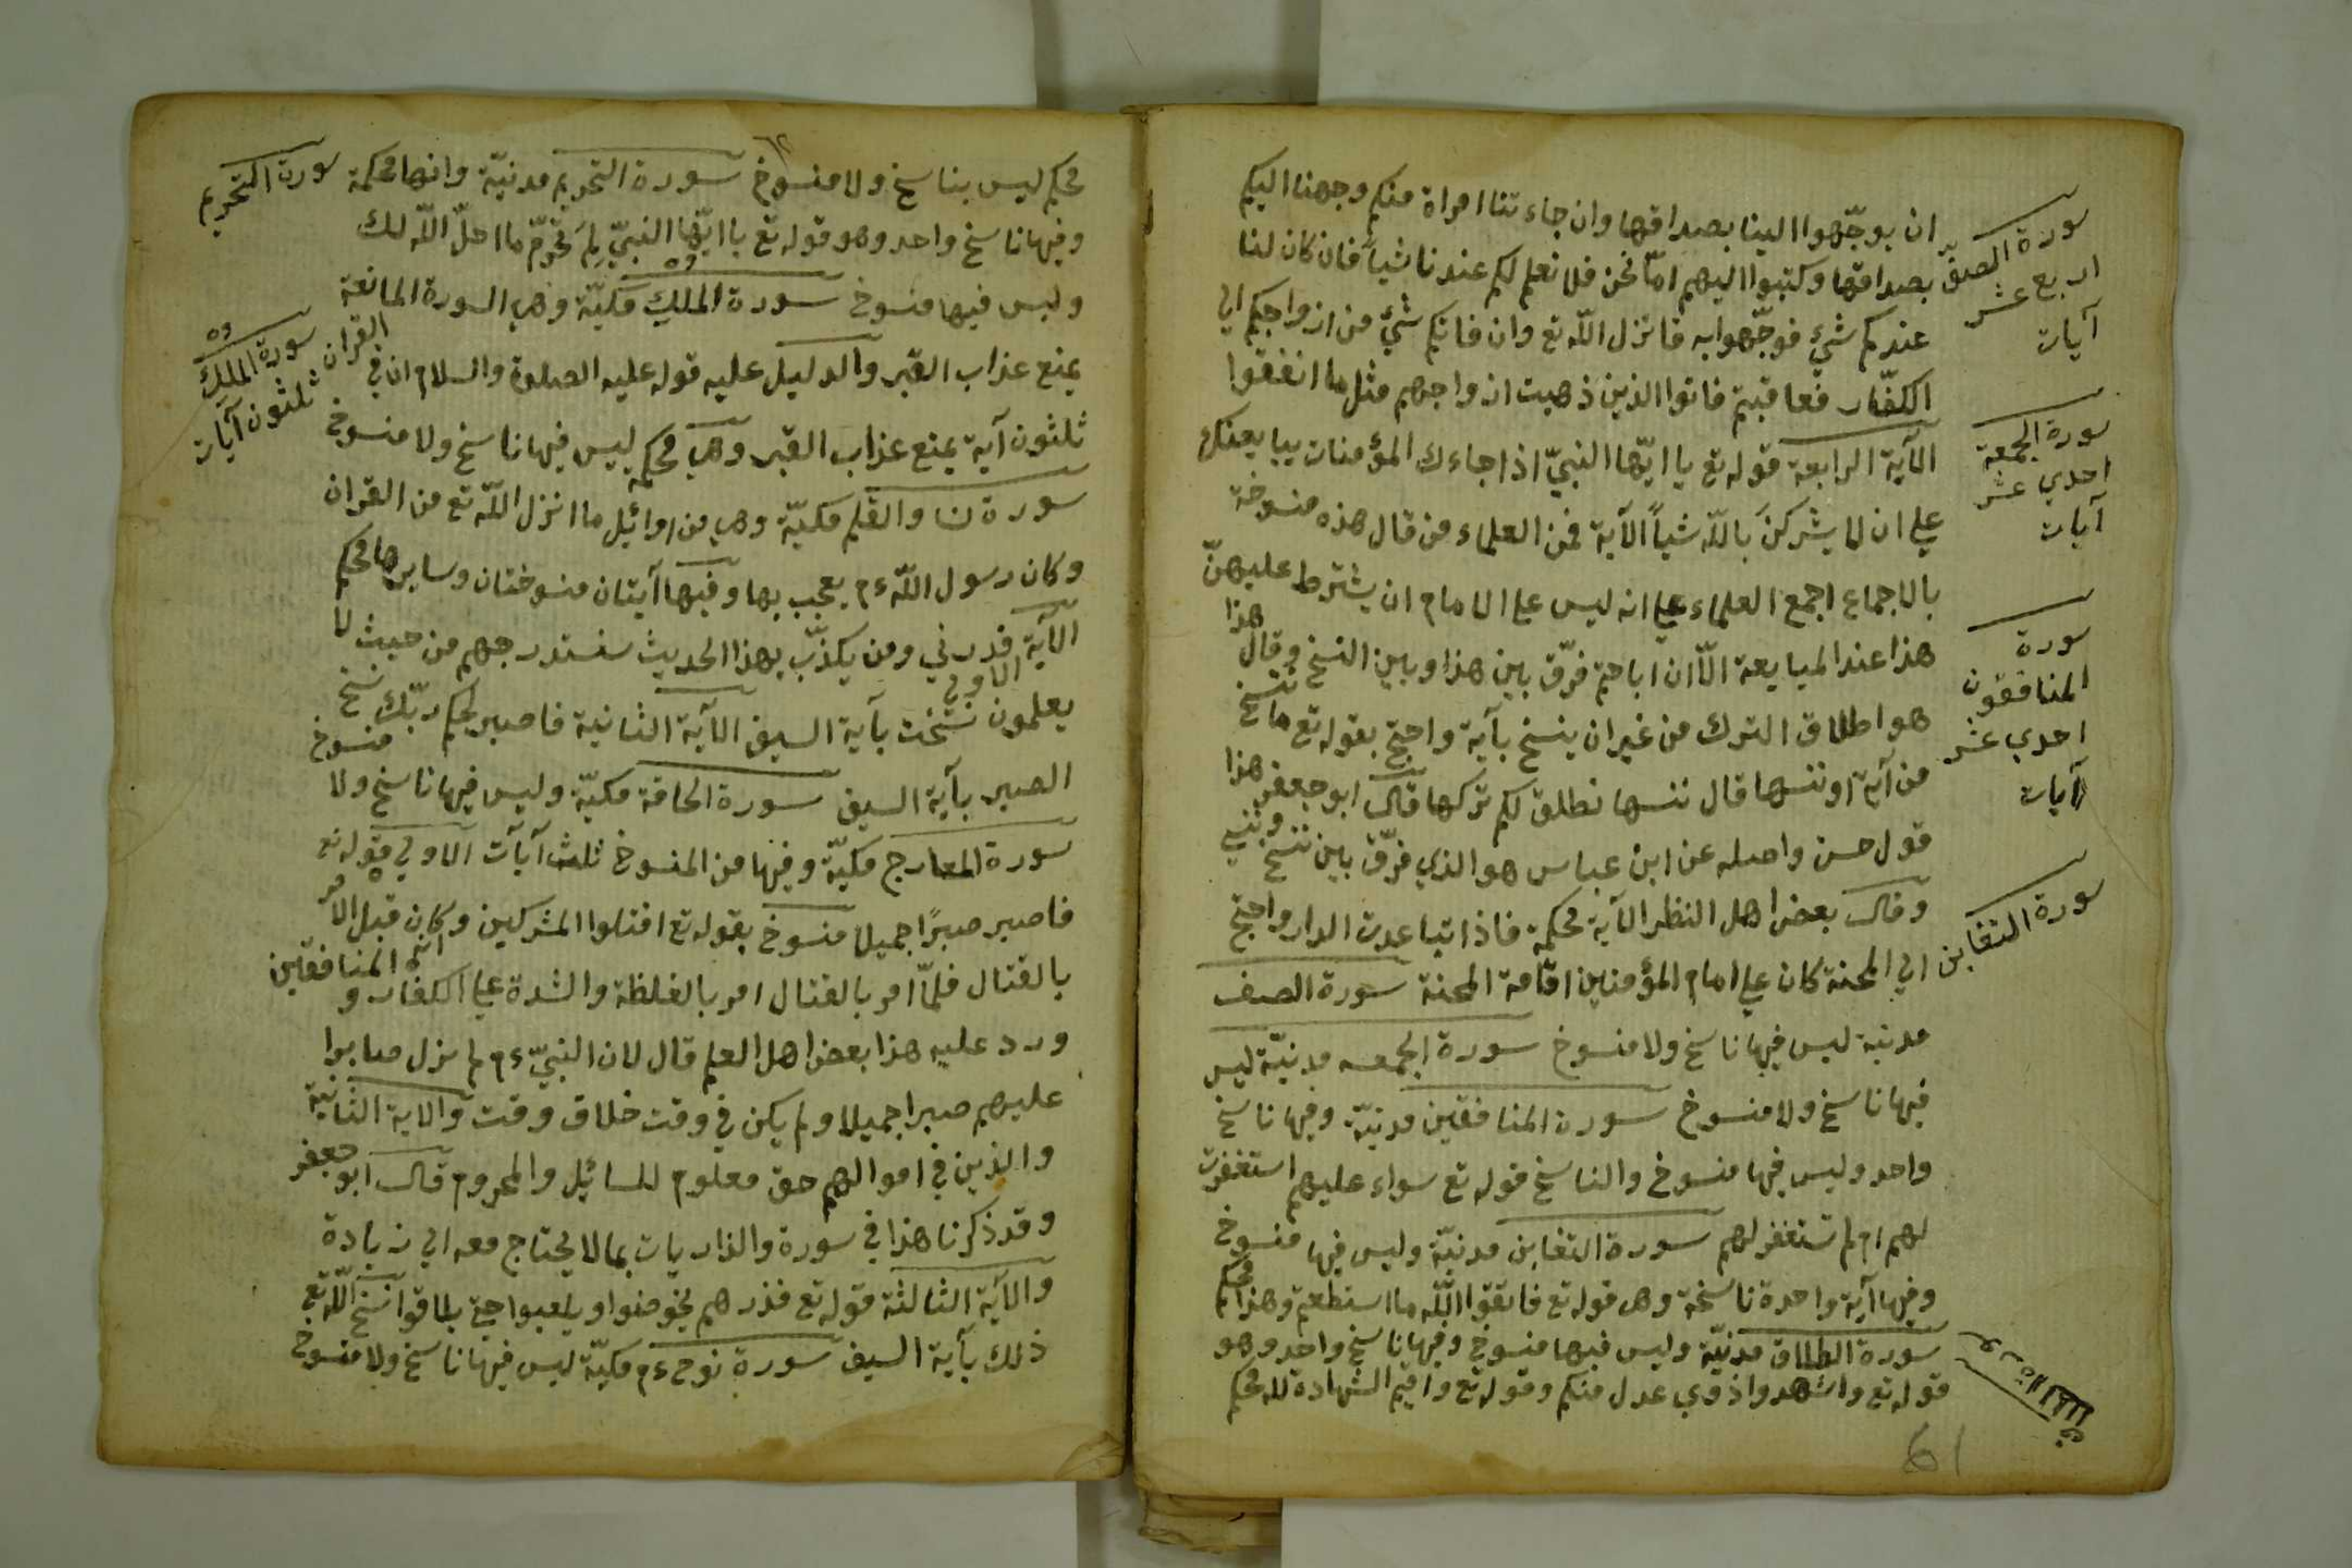 ان يوجّهوا الينا بصداقها وان جاءتنا امراة منكم وجهنا اليكم
بصداقها وكتبوا اليهم امّا نحن فلا نعلم لكم عندنا شياً فان كان لنا
عندكم شئ فوجّهوا به فانزل الله تع وان فاتكم شئ من ازواجكم الي
الكفّار فعاقبتم فاتوا الذين ذهبت ازواجهم مثل ما انفقوا
الآية الرابعة قوله تع يا ايّها النبيّ اذا جاءك المؤمنات يبايعنك
علي ان لا يشركنَ بالله شياً الآية فمن العلماء من قال هذه منسوخة
بالاجماع اجمع العلماء علي انه ليس علي الامام ان يشترط عليهنّ
هذا عند المبايعة الّا ان اباحتم فرّق بين هذا وبين النسخ وقال هذا
هو اطلاق الترك من غير ان ينسخ بآية واحتج بقوله تع ما ننسخ
من آية او ننسها قال ننسها نطلق لكم تركها قال ابو جعفر هذا
قول حسن واصله عن ابن عباس هو الذي فرّق بين ننسخ وننسي
وقال بعض اهل النظر الآية محكمة فاذا تباعدت الدار واحتج
الي المحنة كان علي امام المؤمنين اقامة المحنة سورة الصف
مدنية ليس فيها ناسخ ولا منسوخ سورة الجمعه مدنيّة ليس
فيها ناسخ ولا منسوخ سورة المنافقين مدنيّة وفيها ناسخ
واحد وليس فيها منسوخ والناسخ قوله تع سواء عليهم استغفرت
لهم ام لم تستغفر لهم سورة التغابن مدنيّة وليس فيها منسوخ
وفيها آية واحدة ناسخة وهي قوله تع فاتقوا الله ما استطعتم وهذا محكم
سورة الطلاق مدنيّة وليس فيها منسوخ وفيها ناسخ واحد وهو
قوله تع واشهدوا ذوي عدل منكم وقوله تع واقيموا الشهادة لله محكم
سورة الصفّ
اربع عشر
آيات
سورة الجمعة
احدي عشر
آيات
سورة
المنافقون
احدي عشر
آيات
سورة التغابن
61
محكم ليس بناسخ ولا منسوخ سورة التحريم مدنيّة وانها محكمة
وفيها ناسخ واحد وهو قوله تع يا ايّها النبيّ لِمَ تحرّم ما احلّ الله لك
وليس فيها منسوخ سورة الملك مكيّة وهي السورة المانعة
يمنع عذاب القبر والدليل عليه قوله عليه الصلوة والسلام ان في القران
ثلثون آية يمنع عذاب القبر وهي محكم ليس فيها ناسخ ولا منسوخ
سورة ن والقلم مكيّة وهي من اوائل ما انزل الله تع من القران
وكان رسول الله عم يعجب بها وفيها آيتان منسوختان وسايرها محكم
الآية الاولي فذرني ومن يكذّب بهذا الحديث سنستدرجهم من حيث لا
يعلمون نسخت بآية السيف الآية الثانية فاصبر لحكم ربّك نسخ
الصبر بآية السيف سورة الحاقة مكيّة وليس فيها ناسخ ولا منسوخ
سورة المعارج مكيّة وفيها من المنسوخ ثلث آيات الاولي قوله تع
فاصبر صبرًا جميلا منسوخ بقوله تع اقتلوا المشركين وكان قبل الامر
بالقتال فلمّا امر بالقتال امر بالغلظة والشدة علي الكفار و المنافقين
ورد عليه هذا بعض اهل العلم قال لان النبيّ عم لم يزل صابرا
عليهم صبرا جميلا ولم يكن في وقت خلاف وقت والاية الثانية
والذين في اموالهم حق معلوم للسائل والمحروم قال ابو جعفر
وقد ذكرنا هذا في سورة والذاريات بما لا يحتاج معه الي زيادة
والآية الثالثة قوله تع فذرهم يخوضوا ويلعبوا حتي يلاقوا نسخ الله تع
ذلك بآية السيف سورة نوح عم مكيّة ليس فيها ناسخ ولا منسوخ
سورة التحريم
سورة الملك
ثلثون آيات